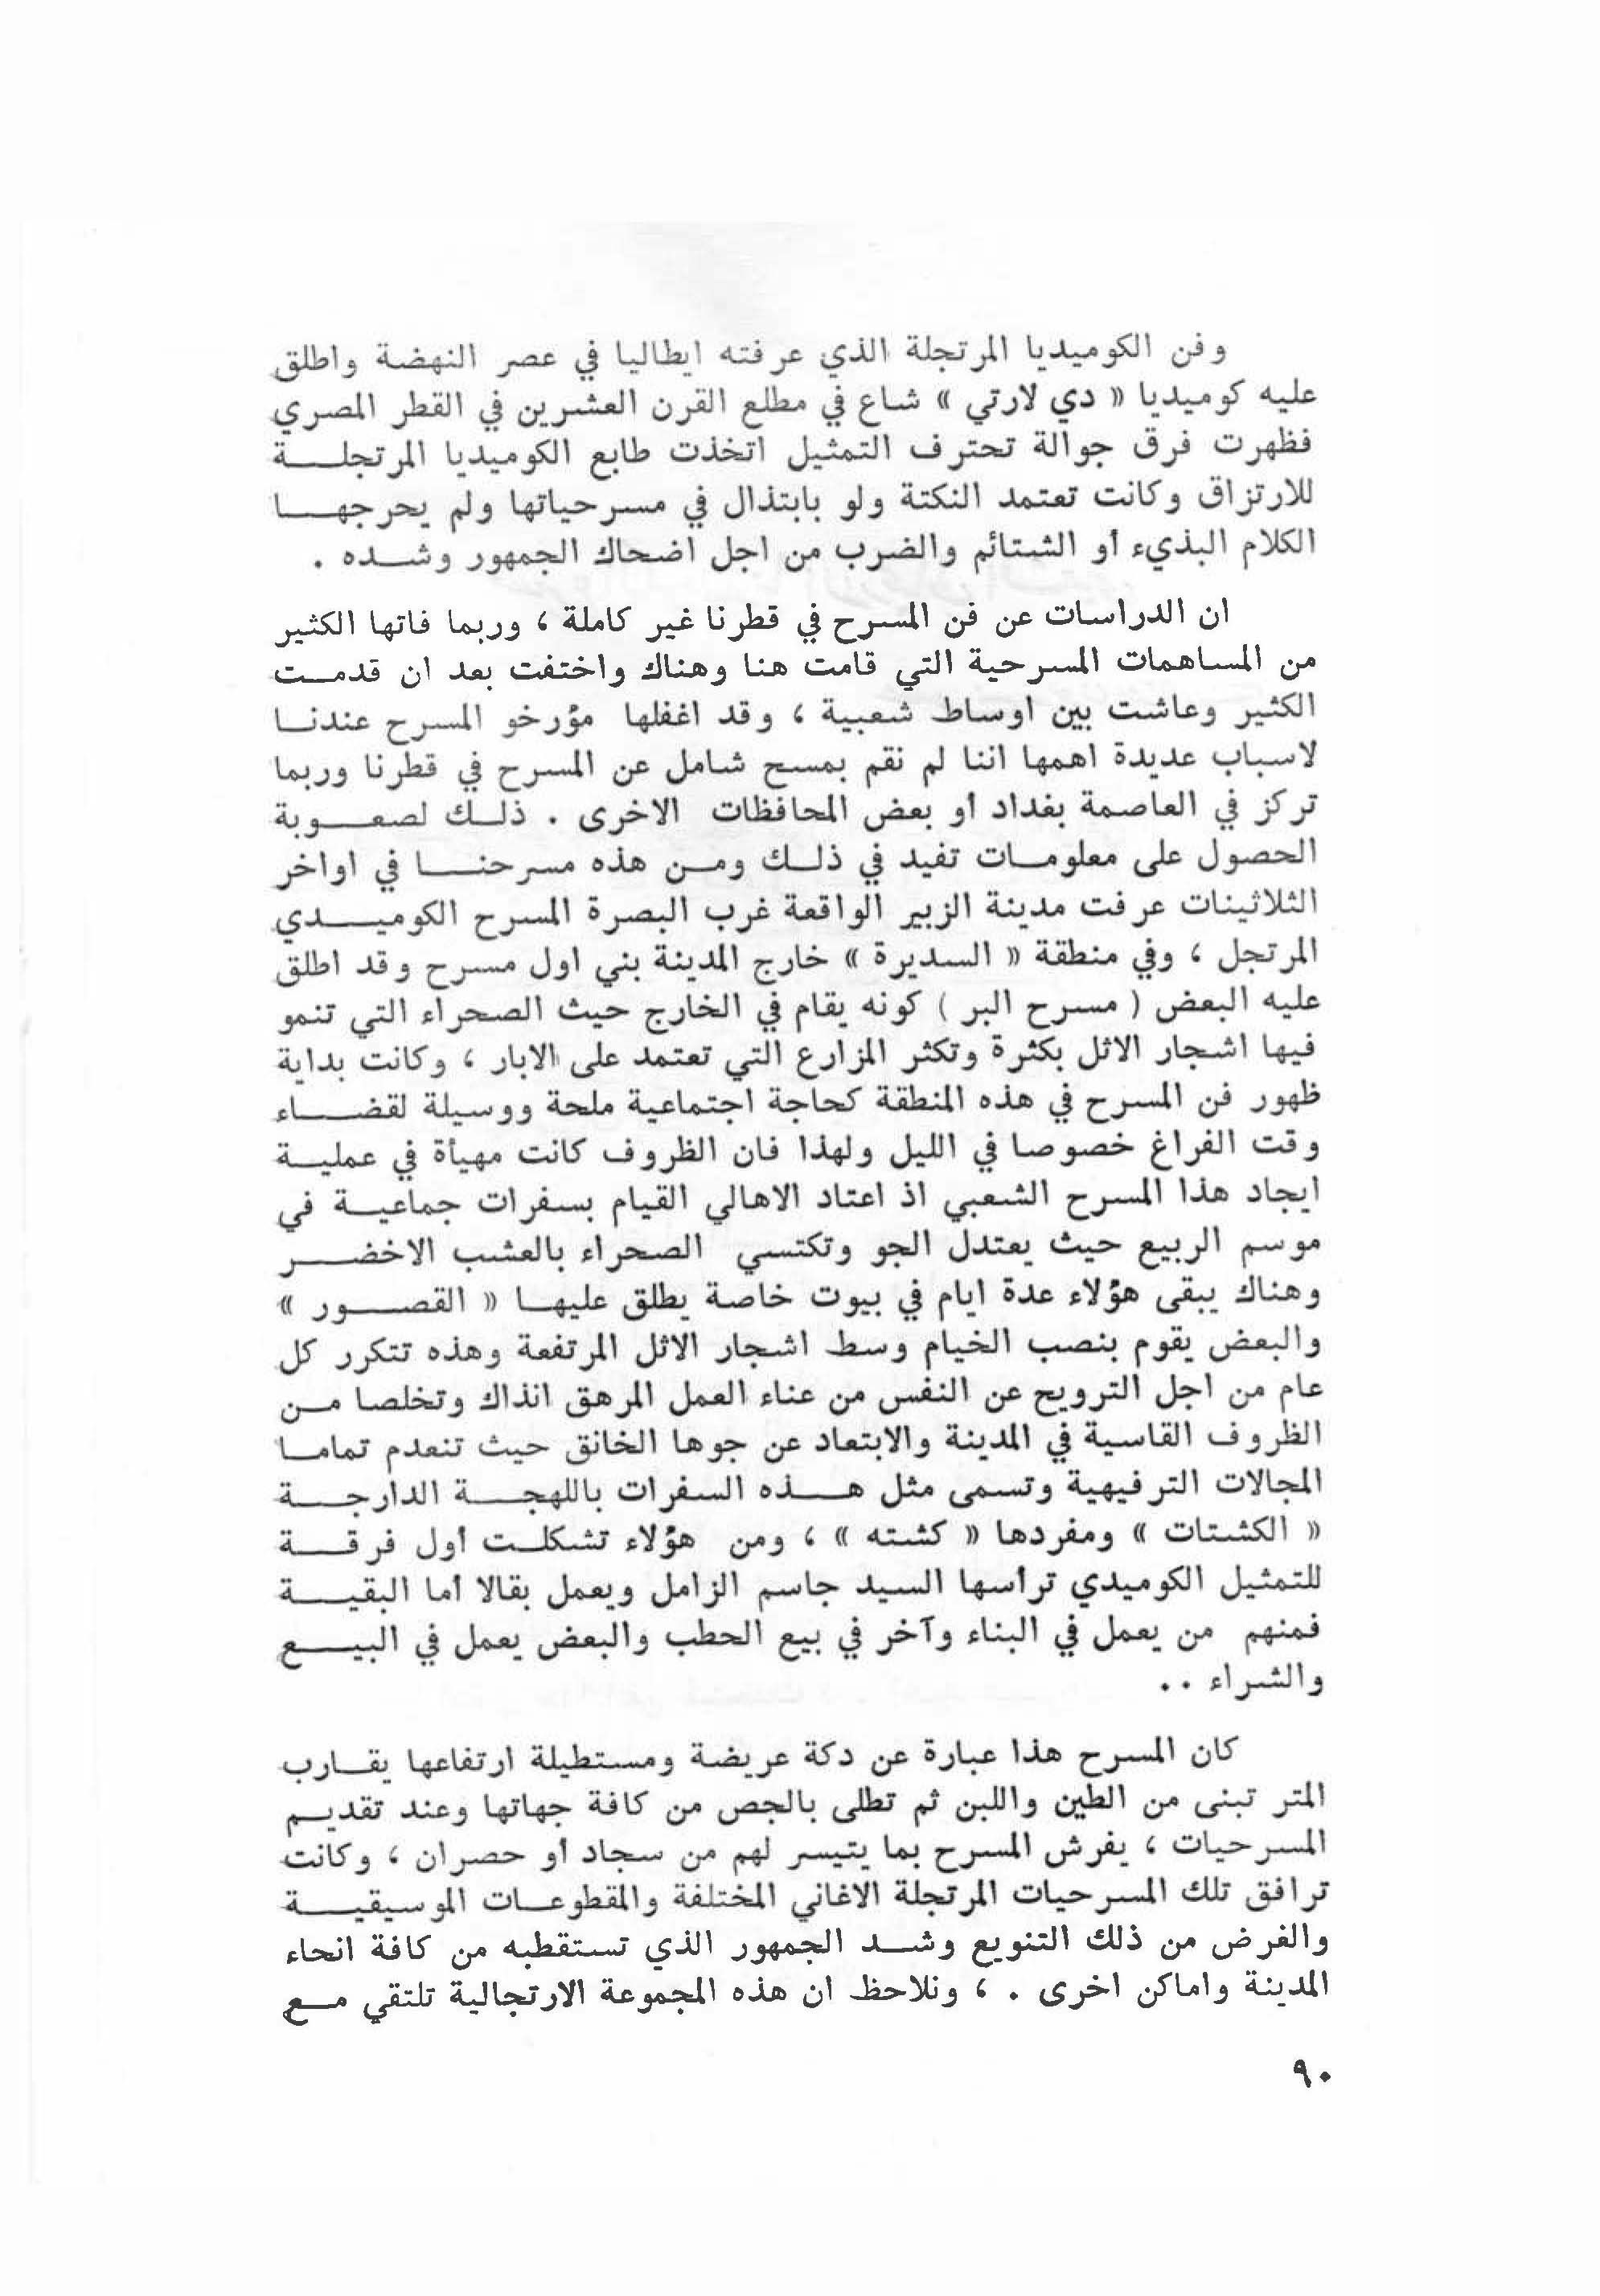 وفن الكوميديا المرتجلة الذي عرفته ايطاليا في عصر النهضة واطلق
عليه كوميديا « دي لارتي » شاع في مطلع القرن العشرين في القطر المصري
فظهرت فرق جوالة تحترف التمثيل اتخذت طابع الكوميديا المرتجلة
للارتزاق وكانت تعتمد النكتة ولو بابتذال في مسرحياتها ولم يحرجها
الكلام البذيء أو الشتائم والضرب من اجل اضحاك الجمهور وشده .
ان الدراسات عن فن المسرح في قطرنا غير كاملة ، وربما فاتها الكثير
من المساهمات المسرحية التي قامت هنا وهناك واختفت بعد ان قدمت
الكثير وعاشت بين اوساط شعبية ، وقد اغفلها مؤرخو المسرح عندنا
لاسباب عديدة اهمها اننا لم نقم بمسح شامل عن المسرح في قطرنا وربما
تركز في العاصمة بغداد أو بعض المحافظات الاخرى . ذلك لصعوبة
الحصول على معلومات تفيد في ذلك ومن هذه مسرحنا في اواخر
الثلاثينات عرفت مدينة الزبير الواقعة غرب البصرة المسرح الكوميدي
المرتجل ، وفي منطقة « السديرة » خارج المدينة بني اول مسرح وقد اطلق
عليه البعض ( مسرح البر ) كونه يقام في الخارج حيث الصحراء التي تنمو
فيها اشجار الاثل بكثرة وتكثر المزارع التي تعتمد على الابار ، وكانت بداية
ظهور فن المسرح في هذه المنطقة كحاجة اجتماعية ملحة ووسيلة لقضاء
وقت الفراغ خصوصا في الليل ولهذا فان الظروف كانت مهيأة في عملية
ايجاد هذا المسرح الشعبي اذ اعتاد الاهالي القيام بسفرات جماعية في
موسم الربيع حيث يعتدل الجو وتكتسي الصحراء بالعشب الاخضر
وهناك يبقى هؤلاء عدة ايام في بيوت خاصة يطلق عليها « القصور »
والبعض يقوم بنصب الخيام وسط اشجار الاثل المرتفعة وهذه تتكرر كل
عام من اجل الترويح عن النفس من عناء العمل المرهق انذاك وتخلصا من
الظروف القاسية في المدينة والابتعاد عن جوها الخانق حيث تنعدم تماما
المجالات الترفيهية وتسمى مثل هذه السفرات باللهجة الدارجة
« الكشتات » ومفردها « كشته » ، ومن هؤلاء تشكلت أول فرقة
للتمثيل الكوميدي ترأسها السيد جاسم الزامل ويعمل بقالا أما البقية
فمنهم من يعمل في البناء وآخر في بيع الحطب والبعض يعمل في البيع
والشراء ..
كان المسرح هذا عبارة عن دكة عريضة ومستطيلة ارتفاعها يقارب
المتر تبنى من الطين واللبن ثم تطلى بالجص من كافة جهاتها وعند تقديم
المسرحيات ، يفرش المسرح بما يتيسر لهم من سجاد أو حصران ، وكانت
ترافق تلك المسرحيات المرتجلة الاغاني المختلفة والمقطوعات الموسيقية
والغرض من ذلك التنويع وشد الجمهور الذي تستقطبه من كافة انحاء
المدينة واماكن اخرى . ، ونلاحظ ان هذه المجموعة الارتجالية تلتقي مع
٩٠